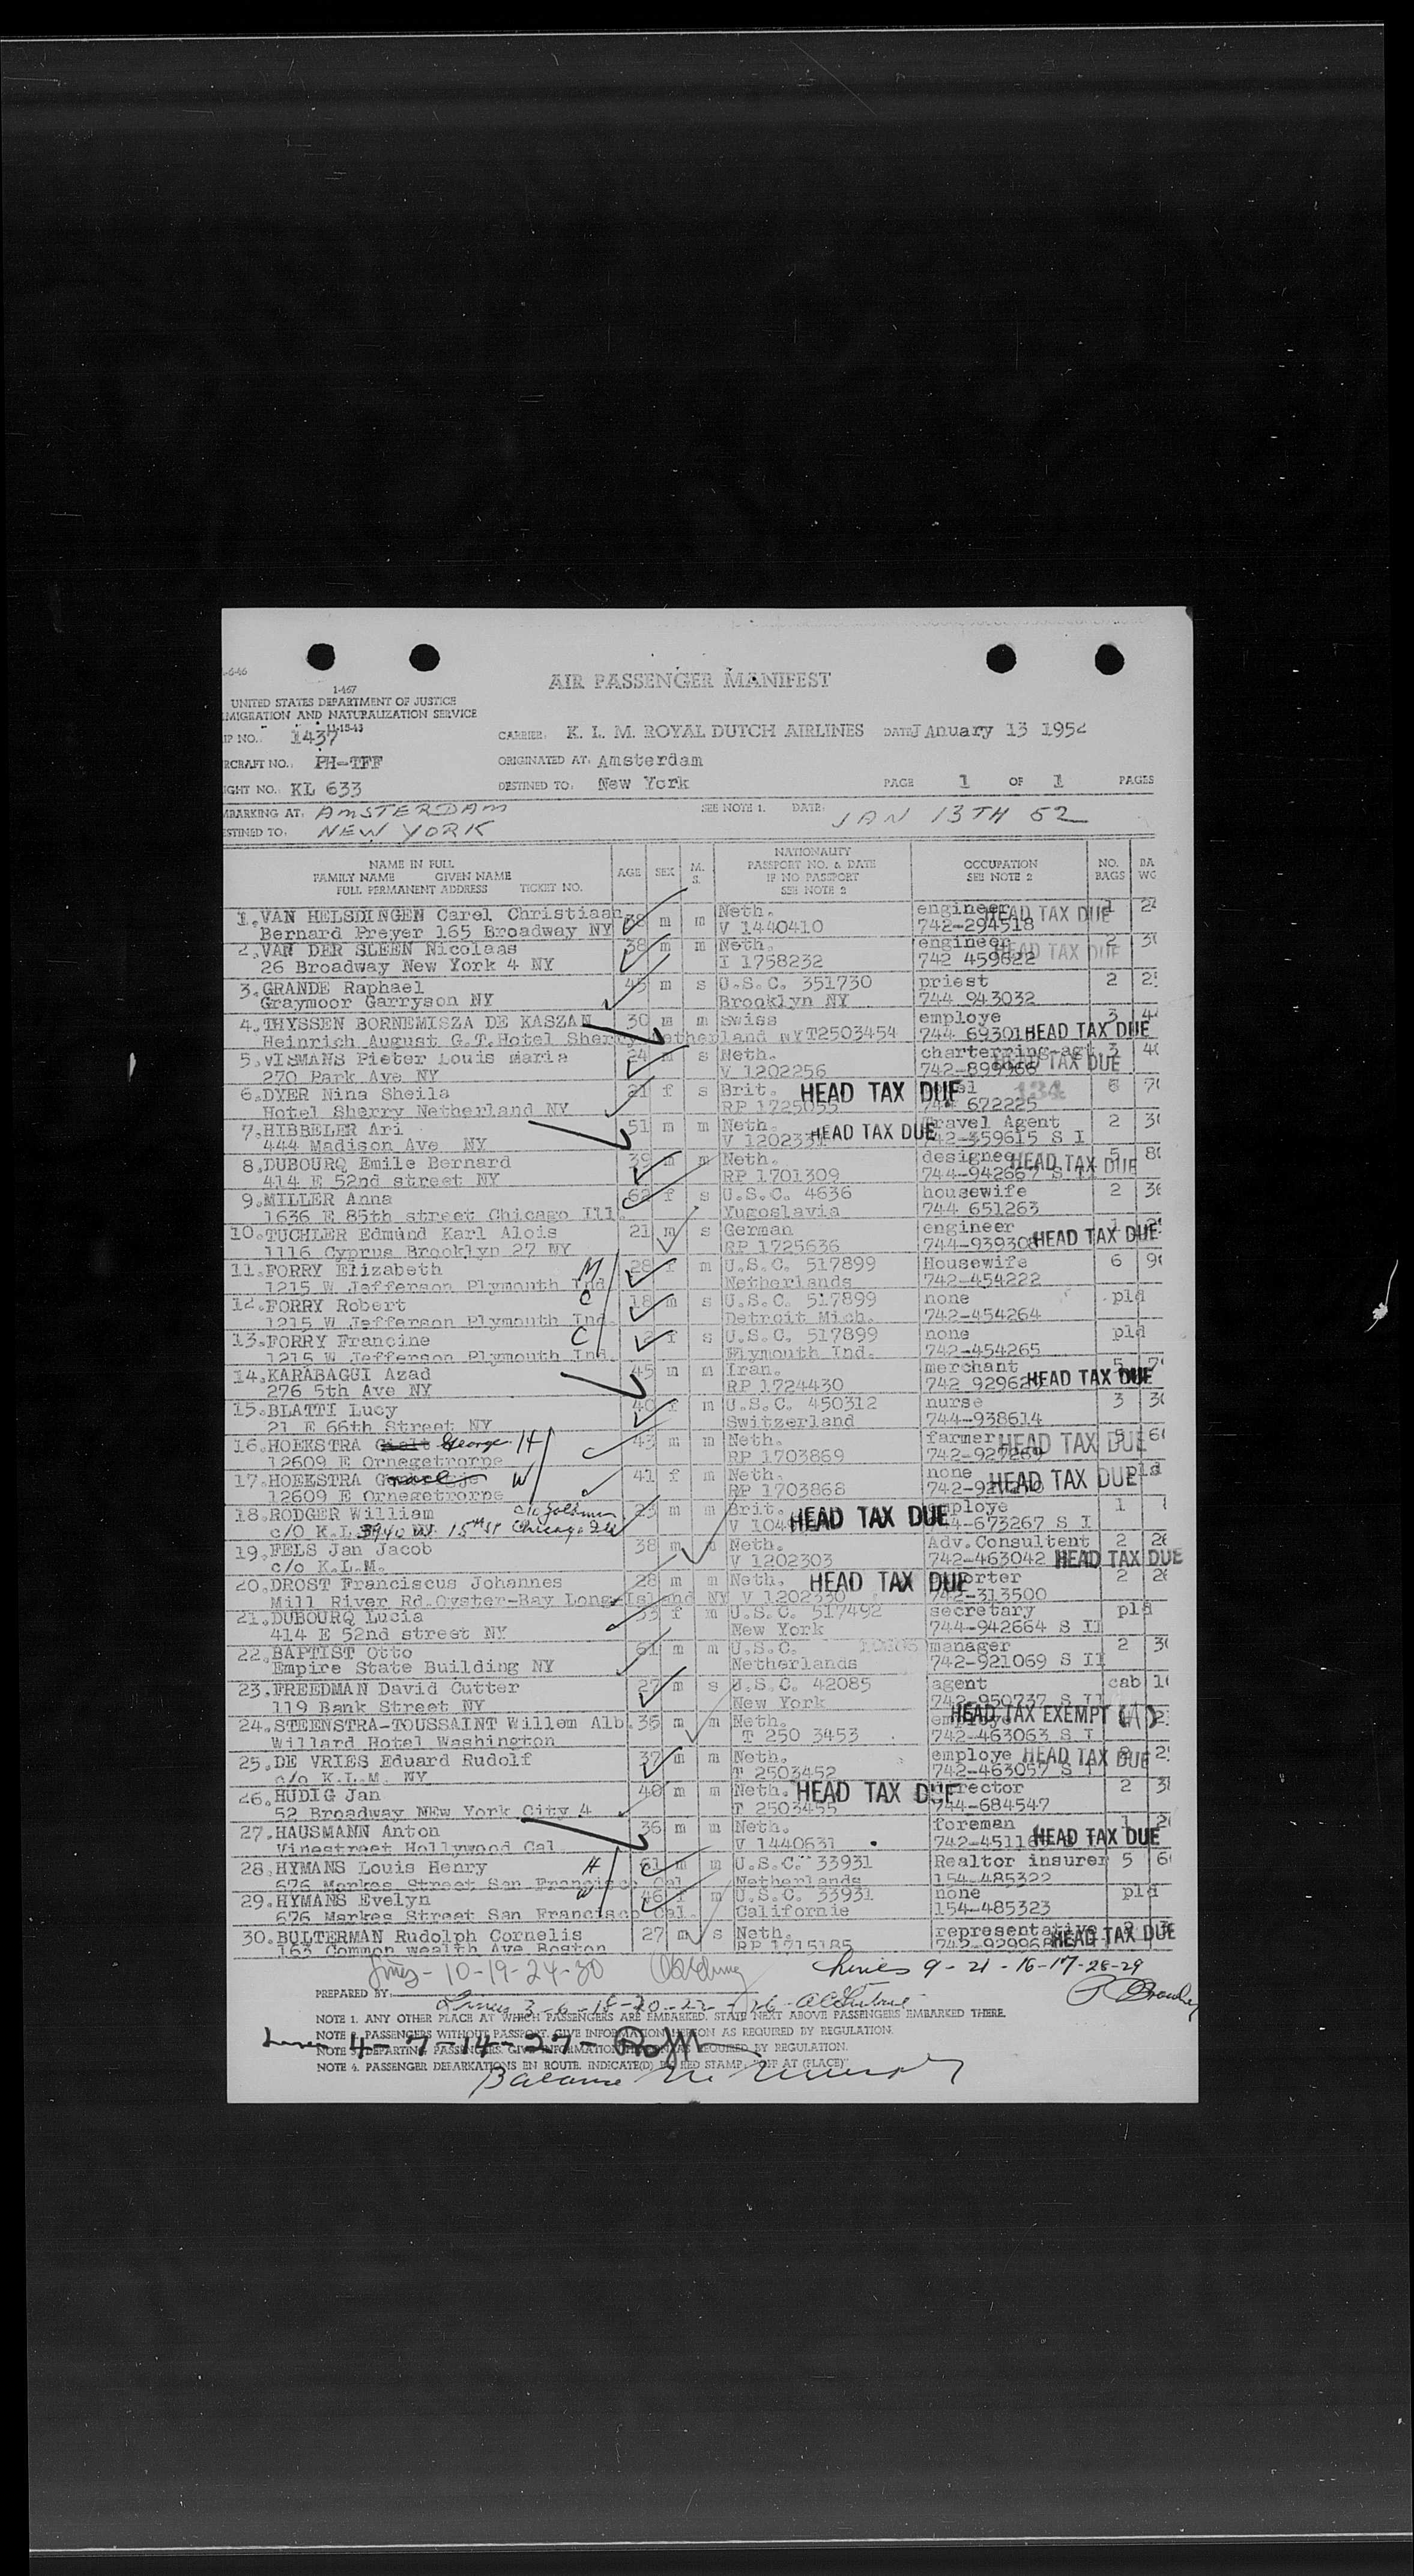 AIR PASSENGER MANIFEST
1-467
UNITED STATES DEPARTMENT OF JUSTICE
MIGRATION AND NATURALIZATION SERVICE
11-15-43
IP NO. 1437 CARRIER: K. L. M. ROYAL DUTCH AIRLINES DATE JAnuary 13 195
RCRAFT NO. PH-TFF ORIGINATED AT: Amsterdam
IGHT NO. KL 633 DESTINED TO: New York PAGE 1 OF 1 PAGES
MBARKING AT: AMSTERDAM SEE NOTE 1. DATE: JAN 13TH 52
ESTINED TO: NEW YORK
NAME IN FULL
FAMILY NAME GIVEN NAME
FULL PERMANENT ADDRESS TICKET NO.
AGE SEX M. S.
NATIONALITY
PASSPORT NO. & DATE
IF NO PASSPORT
SEE NOTE 2
OCCUPATION
SEE NOTE 2
NO. BAGS
BA WG
1. VAN HELSDINGEN Carel Christiaan 38 m m Neth. engineer HEAD TAX DUE
Bernard Preyer 165 Broadway NY V 1440410 742-294518
2. VAN DER SLEEN Nicolaas 38 m m Neth. engineer 2 HEAD TAX DUE
26 Broadway New York 4 NY I 1758232 742 459822
3. GRANDE Raphael 45 m s U.S.C. 351730 priest 2
Graymoor Garryson NY Brooklyn NY 744 943032
4. THYSSEN BORNEMISZA DE KASZAN 30 m m Swiss employe 3
Heinrich August G.T.Hotel Sherry Netherland NY T2503454 744 69301 HEAD TAX DUE
5. VISMANS Pieter Louis Maria 24 m s Neth. charterring-agt 3
270 Park Ave NY V 1202256 742-899966 HEAD TAX DUE
6. DYER Nina Sheila 21 f s Brit. HEAD TAX DUE 134
Hotel Sherry Netherland NY RP 1725055 744 672225
7. HIBBELER Ari 51 m m Neth. Travel Agent 2
444 Madison Ave NY V 120233 HEAD TAX DUE 742-359615 S I
8. DUBOURQ Emile Bernard 39 m m Neth. designer 5
414 E 52nd street NY RP 1701309 744-942667 HEAD TAX DUE
9. MILLER Anna 62 f s U.S.C. 4636 housewife 2
1636 E 85th street Chicago Ill. Yugoslavia 744 651263
10. TUCHLER Edmund Karl Alois 21 m s German engineer 1
1116 Cyprus Brooklyn 27 NY RP 1725636 744-93930 HEAD TAX DUE
11. FORRY Elizabeth M 28 f m U.S.C. 517899 Housewife 6
1215 W Jefferson Plymouth Ind. Netherlands 742-454222
12. FORRY Robert C 18 m s U.S.C. 517899 none pld
1215 W Jefferson Plymouth Ind. Detroit Mich. 742-454264
13. FORRY Francine C f s U.S.C. 517899 none pld
1215 W Jefferson Plymouth Ind. Plymouth Ind. 742-454265
14. KARABAGUI Azad 45 m m Iran. merchant 5
276 5th Ave NY RP 1724430 742 92962 HEAD TAX DUE
15. BLATTI Lucy 40 f m U.S.C. 450312 nurse 3
21 E 66th Street NY Switzerland 744-938614
16. HOEKSTRA George H 43 m m Neth. farmer 5
12609 E Ornegetrorpe RP 1703869 742-927269 HEAD TAX DUE
17. HOEKSTRA W 41 f m Neth. none pld
12609 E Ornegetrorpe RP 1703868 HEAD TAX DUE
18. RODGER William c/o Goldman 23 m m Brit. employe 1
c/o K.L. 3940 W. 15th St Chicago Ill V 104 HEAD TAX DUE 744-673267 S I
19. FELS Jan Jacob 38 m m Neth. Adv.Consultent 2
c/o K.L.M. V 1202303 742-463042 HEAD TAX DUE
20. DROST Franciscus Johannes 28 m m Neth. HEAD TAX DUE 2
Mill River Rd.Oyster-Bay Long-Island NY V 1202330 742-313500
21. DUBOURQ Lucia 33 f m U.S.C. 517492 secretary pld
414 E 52nd street NY New York 744-942664 S II
22. BAPTIST Otto 61 m m U.S.C. manager 2
Empire State Building NY Netherlands 742-921069 S II
23. FREEDMAN David Cutter 27 m s U.S.C. 42085 agent cab
119 Bank Street NY New York 742-950737 S II
24. STEENSTRA-TOUSSAINT Willem Alb. 35 m m Neth. employe HEAD TAX EXEMPT
Willard Hotel Washington T 250 3453 742-463063 S I
25. DE VRIES Eduard Rudolf 37 m m Neth. employe HEAD TAX DUE
c/o K.L.M. NY T 2503452 742-463057 S I
26. HUDIG Jan 40 m m Neth. HEAD TAX DUE director 2
52 Broadway NEw York City 4 T 2503455 744-684547
27. HAUSMANN Anton 36 m m Neth. foreman 1
Vinestreet Hollywood Cal V 1440631 742-4511 HEAD TAX DUE
28. HYMANS Louis Henry H 61 m m U.S.C. 33931 Realtor insurer 5
676 Markes Street San Francisco Cal Netherlands 154-485322
29. HYMANS Evelyn W 46 f m U.S.C. 33931 none pld
676 Markes Street San Francisco Cal. Californie 154-485323
30. BULTERMAN Rudolph Cornelis 27 m s Neth. representative 2
163 Common wealth Ave Boston RP 1715185 742-92996 HEAD TAX DUE
Lines - 10-19-24-30 Lines 9 - 21 - 16-17-28-29
PREPARED BY:
Lines 3-6-18-20-22-26
NOTE 1. ANY OTHER PLACE AT WHICH PASSENGERS ARE EMBARKED. STATE NEXT ABOVE PASSENGERS EMBARKED THERE.
NOTE 2. PASSENGERS WITHOUT PASSPORT. GIVE INFORMATION HEREON AS REQUIRED BY REGULATION.
Lines 4-7-14-27-
NOTE 3. DEPARTING PASSENGERS. GIVE INFORMATION HEREON AS REQUIRED BY REGULATION.
NOTE 4. PASSENGER DEBARKATIONS EN ROUTE. INDICATE(D) BY RED STAMP "OFF AT (PLACE)"
Balance